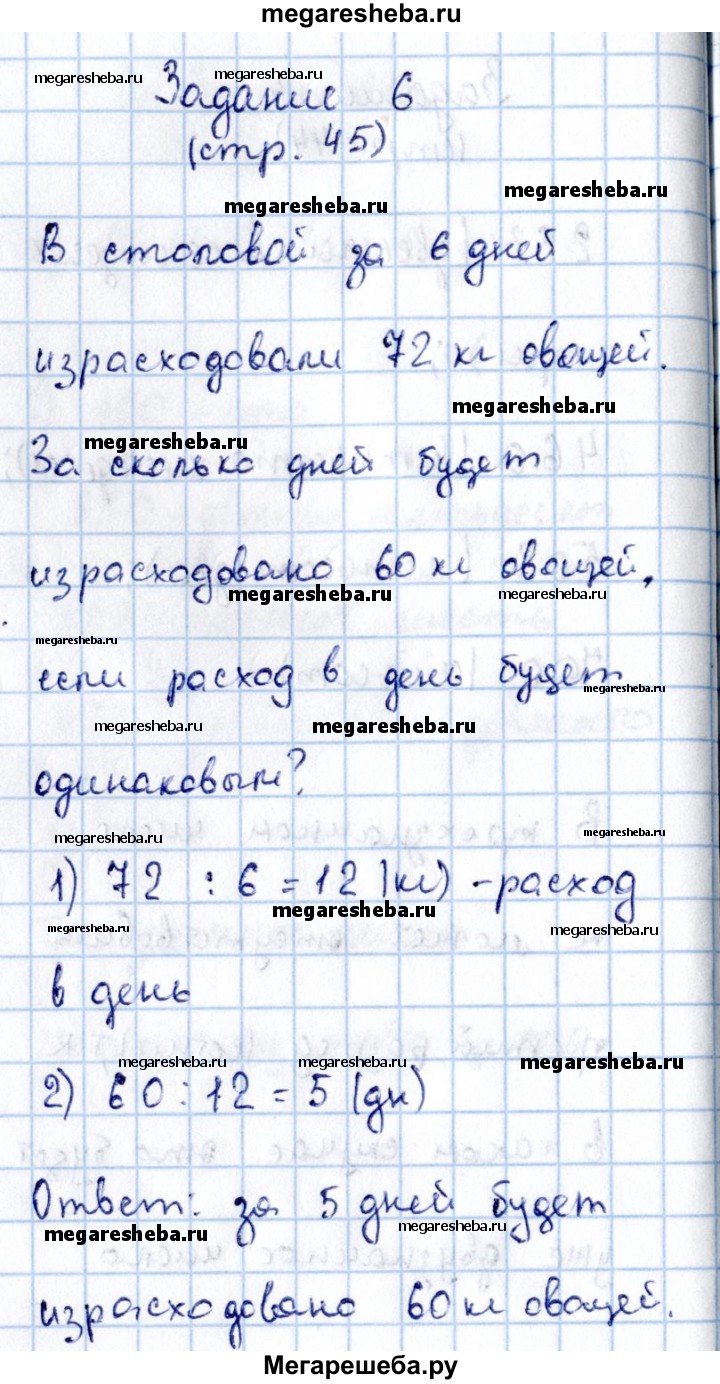 megaresheba.ru
megaresheba.ru megaresheba.ru
Задание 6
(стр. 45)
megaresheba.ru
megaresheba.ru
В столовой за 6 дней
израсходовали 72 кг овощей.
megaresheba.ru
megaresheba.ru
За сколько дней будет
израсходовано 60 кг овощей,
megaresheba.ru megaresheba.ru
megaresheba.ru
если расход в день будет
megaresheba.ru
megaresheba.ru megaresheba.ru
одинаковым?
megaresheba.ru megaresheba.ru
1) 72 : 6 = 12 (кг) - расход
megaresheba.ru
megaresheba.ru megaresheba.ru
в день
megaresheba.ru megaresheba.ru megaresheba.ru
2) 60 : 12 = 5 (дн)
Ответ: за 5 дней будет
megaresheba.ru megaresheba.ru
израсходовано 60 кг овощей.
Мегарешеба.ру